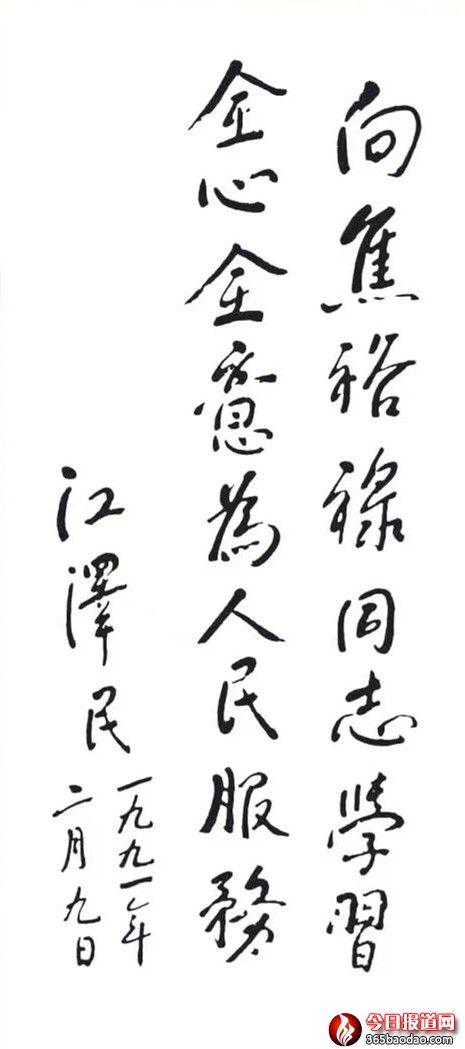 向焦裕禄同志學習
全心全意為人民服務
江澤民
一九九一年
二月九日
今日报道网
365baodao.com